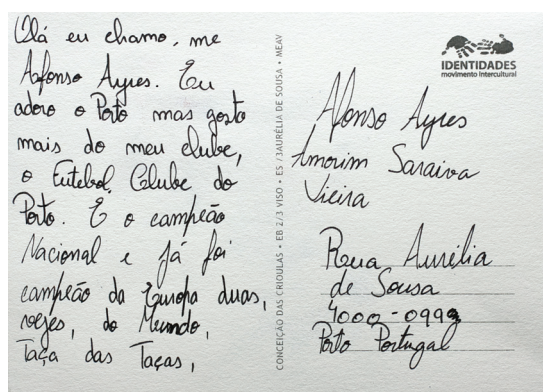 Olá eu chamo, me
Afonso Ayres. Eu
adoro o Porto mas gosto
mais do meu clube,
o Futebol Clube do
Porto. E o campeão
Nacional e já foi
campeão da Europa duas,
vezes, do Mundo,
Taça das Taças,
CONCEIÇÃO DAS CRIOULAS • EB 2/3 VISO • ES /3AURÉLIA DE SOUSA • MEAV
IDENTIDADES
movimento intercultural
Afonso Ayres
Amorim Saraiva
Vieira
Rua Aurélia
de Sousa
4000-099
Porto Portugal